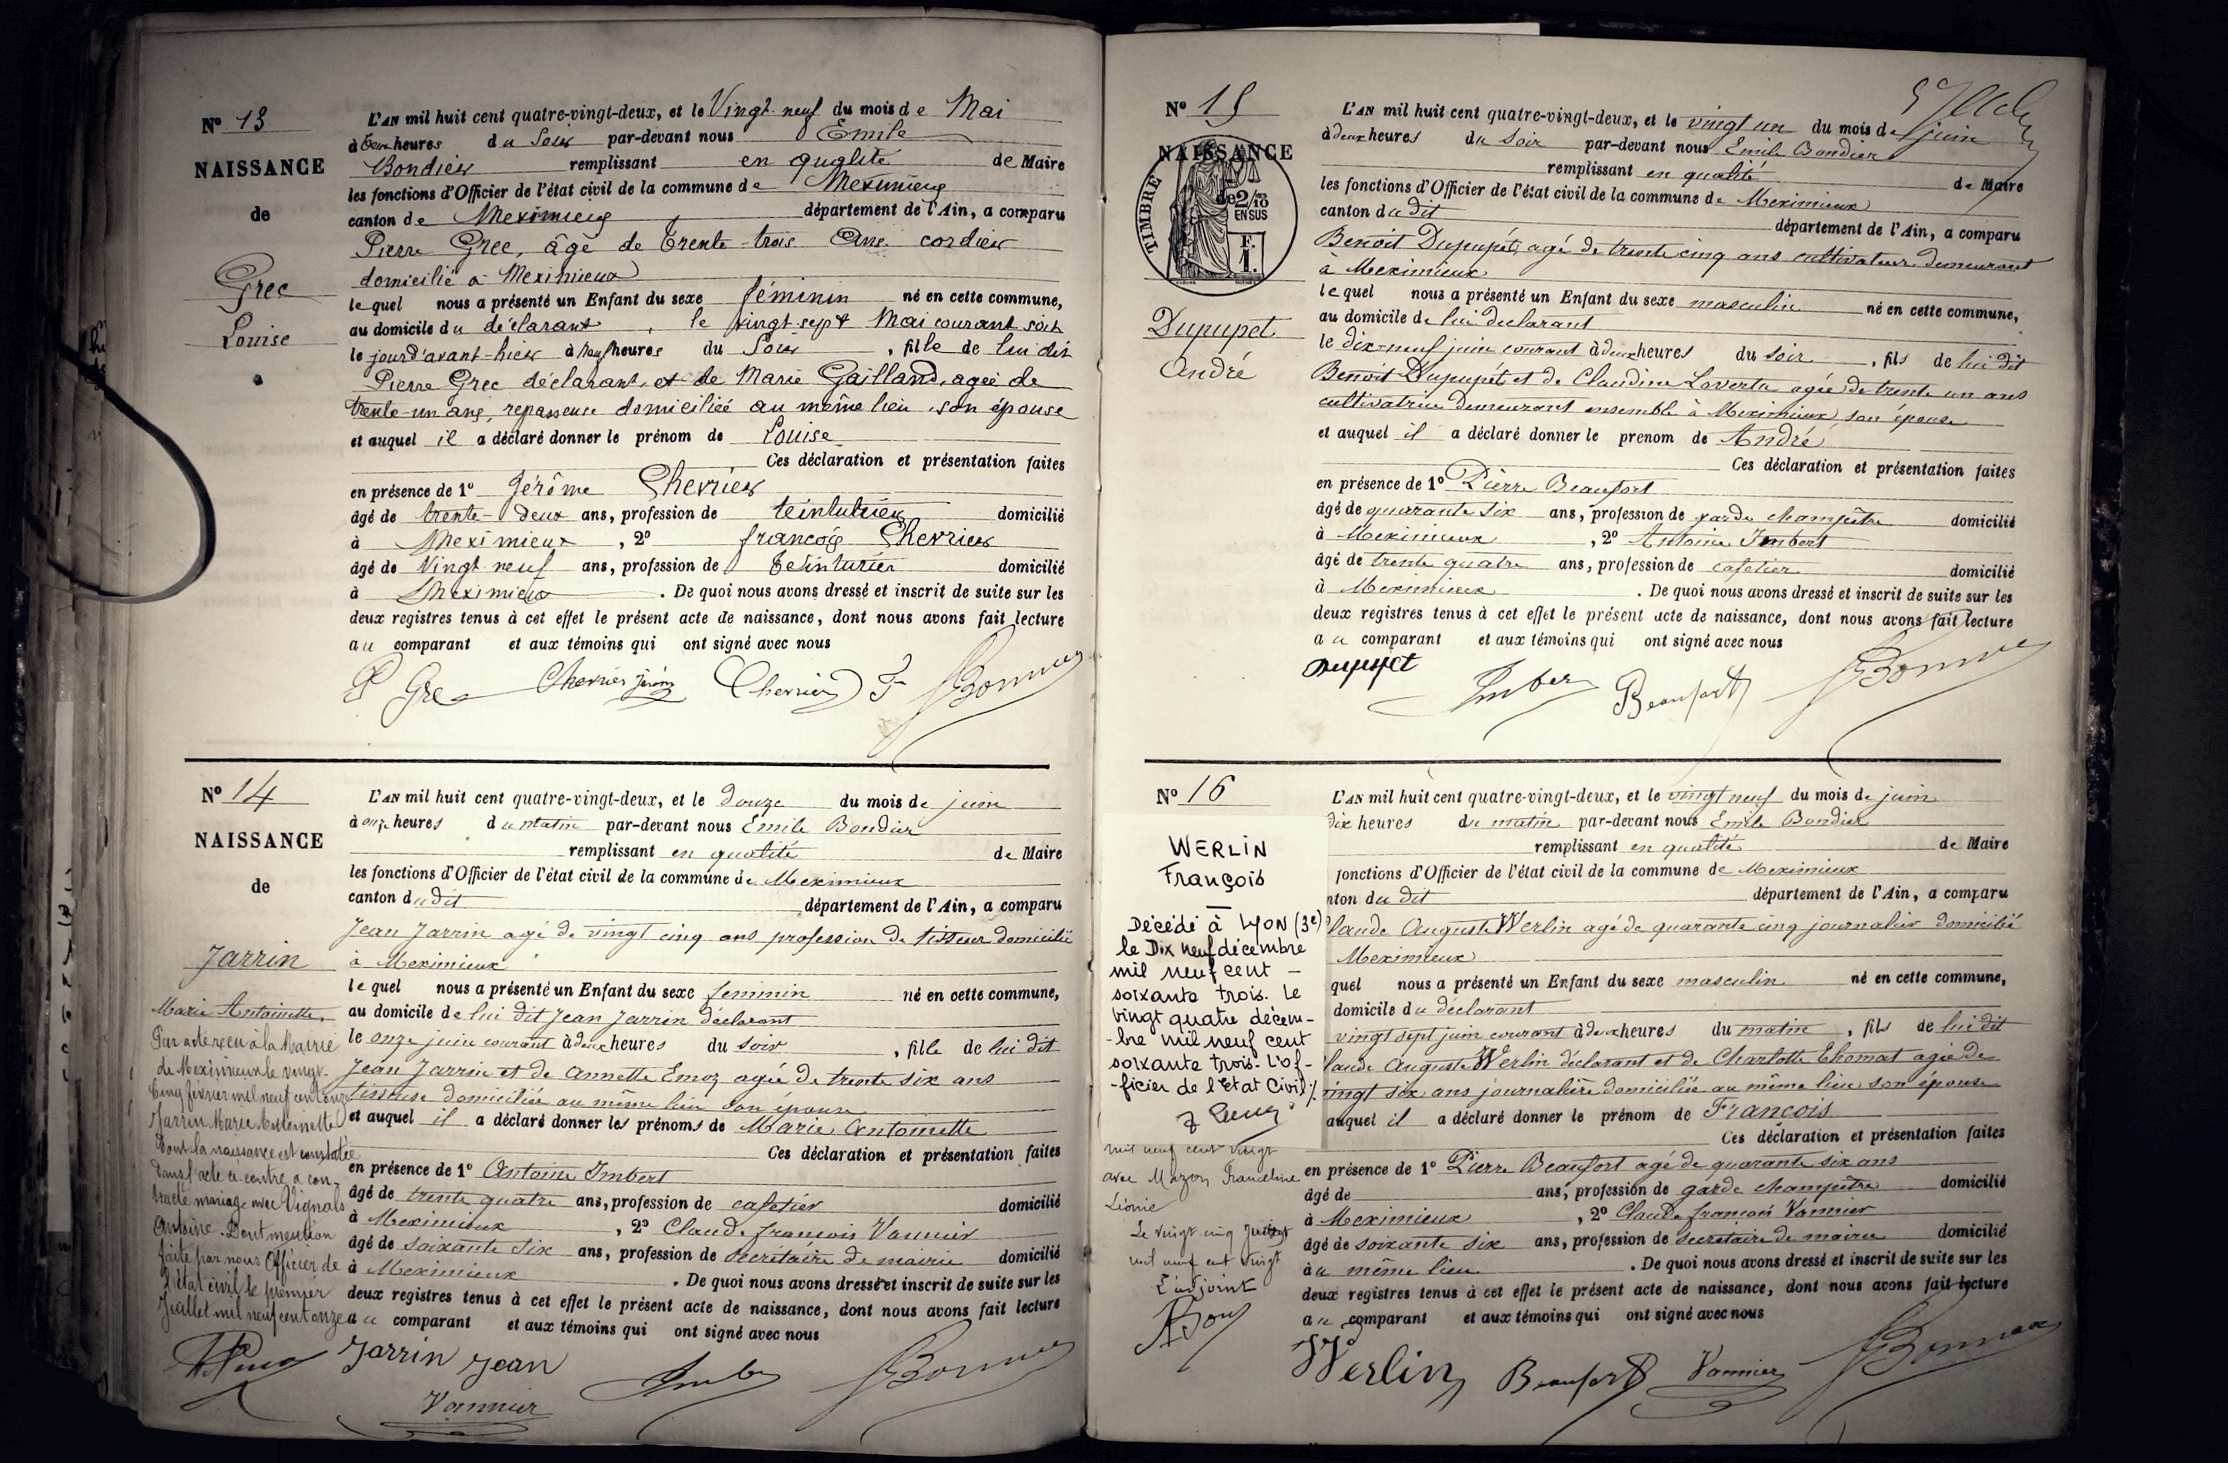 N° 13
NAISSANCE
de
Grec
Louise
L'AN mil huit cent quatre-vingt-deux, et le Vingt-neuf du mois de Mai
à Deux heures du Soir par-devant nous Emile
Bondier remplissant en qualité de Maire
les fonctions d'Officier de l'état civil de la commune de Meximieux
canton de Meximieux département de l'Ain, a comparu
Pierre Grec, âgé de trente-trois Ans. cordier
domicilié à Meximieux
lequel nous a présenté un Enfant du sexe féminin né en cette commune,
au domicile du déclarant, le vingt-sept Mai courant soit
le jour d'avant-hier à neuf heures du Soir, fille de lui dit
Pierre Grec déclarant, et de Marie Gailland, agée de
trente-un ans, repasseuse domiciliée au même lieu, son épouse
et auquel il a déclaré donner le prénom de Louise
Ces déclaration et présentation faites
en présence de 1° Jérôme Cherrier
âgé de trente-deux ans, profession de teinturier domicilié
à Meximieux, 2° françois Cherrier
âgé de Vingt-neuf ans, profession de teinturier domicilié
à Meximieux. De quoi nous avons dressé et inscrit de suite sur les
deux registres tenus à cet effet le présent acte de naissance, dont nous avons fait lecture
au comparant et aux témoins qui ont signé avec nous
P Grec Cherrier Jérôme Cherrier F
N° 14
NAISSANCE
de
Jarrin
Marie Antoinette.
Par acte reçu à la Mairie
de Meximieux le vingt-
cinq février mil neuf cent onze
Jarrin Marie Antoinette
Dont la naissance est constatée
dans l'acte ci-contre, a con-
tracté mariage avec Vignals
Antoine. Dont mention
faite par nous Officier de
l'état civil le premier
Juillet mil neuf cent onze
L'AN mil huit cent quatre-vingt-deux, et le douze du mois de juin
à onze heures du matin par-devant nous Emile Bondier
remplissant en qualité de Maire
les fonctions d'Officier de l'état civil de la commune de Meximieux
canton du dit département de l'Ain, a comparu
Jean Jarrin agé de vingt cinq ans profession de tisseur domicilié
à Meximieux
lequel nous a présenté un Enfant du sexe feminin né en cette commune,
au domicile de lui dit Jean Jarrin déclarant
le onze juin courant à deux heures du soir, fille de lui dit
Jean Jarrin et de Annette Emoz agée de trente six ans
tisseuse domiciliée au même lieu son épouse
et auquel il a déclaré donner les prénoms de Marie Antoinette
Ces déclaration et présentation faites
en présence de 1° Antoine Imbert
âgé de trente quatre ans, profession de cafetier domicilié
à Meximieux, 2° Claude françois Vannier
âgé de soixante six ans, profession de secrétaire de mairie domicilié
à Meximieux. De quoi nous avons dressé et inscrit de suite sur les
deux registres tenus à cet effet le présent acte de naissance, dont nous avons fait lecture
au comparant et aux témoins qui ont signé avec nous
Jarrin Jean
Vannier
N° 15
NAISSANCE
TIMBRE
de 2/10
EN SUS
F.
1.
Dupupet
André
L'AN mil huit cent quatre-vingt-deux, et le vingt un du mois de juin
à deux heures du soir par-devant nous Emile Bondier
remplissant en qualité de Maire
les fonctions d'Officier de l'état civil de la commune de Meximieux
canton du dit département de l'Ain, a comparu
Benoit Dupupét, agé de trente cinq ans cultivateur demeurant
à Meximieux
lequel nous a présenté un Enfant du sexe masculin né en cette commune,
au domicile de lui declarant
le dix-neuf juin courant à deux heures du soir, fils de lui dit
Benoit Dupupét et de Claudine Laverta agée de trente un ans
cultivatrice demeurant ensemble à Meximieux, son épouse
et auquel il a déclaré donner le prenom de André
Ces déclaration et présentation faites
en présence de 1° Pierre Beaufort
âgé de quarante six ans, profession de garde champêtre domicilié
à Meximieux, 2° Antoine Imbert
âgé de trente quatre ans, profession de cafetier domicilié
à Meximieux. De quoi nous avons dressé et inscrit de suite sur les
deux registres tenus à cet effet le présent acte de naissance, dont nous avons fait lecture
au comparant et aux témoins qui ont signé avec nous
Dupupet Imbert Beaufort
N° 16
WERLIN
François
Décédé à LYON (3e)
le Dix neuf décembre
mil neuf cent -
soixante trois. Le
vingt quatre décem-
-bre mil neuf cent
soixante trois. L'of-
-ficier de l'état Civil
mil neuf cent vingt
avec Mazon Franceline
Léonie
Le vingt cinq Juillet
mil neuf cent vingt
L'adjoint
L'AN mil huit cent quatre-vingt-deux, et le vingt neuf du mois de juin
dix heures du matin par-devant nous Emile Bondier
remplissant en qualité de Maire
fonctions d'Officier de l'état civil de la commune de Meximieux
nton du dit département de l'Ain, a comparu
laude Auguste Werlin agé de quarante cinq journalier domicilié
Meximieux
quel nous a présenté un Enfant du sexe masculin né en cette commune,
domicile du déclarant
vingt sept juin courant à deux heures du matin, fils de lui dit
laude Auguste Werlin déclarant et de Charlotte Thomat agée de
vingt six ans journalière domiciliée au même lieu son épouse
auquel il a déclaré donner le prénom de François
Ces déclaration et présentation faites
en présence de 1° Pierre Beaufort agé de quarante six ans
âgé de ans, profession de garde champêtre domicilié
à Meximieux, 2° Claude françois Vannier
âgé de soixante six ans, profession de secrétaire de mairie domicilié
au même lieu. De quoi nous avons dressé et inscrit de suite sur les
deux registres tenus à cet effet le présent acte de naissance, dont nous avons fait lecture
au comparant et aux témoins qui ont signé avec nous
Werlin Beaufort Vannier